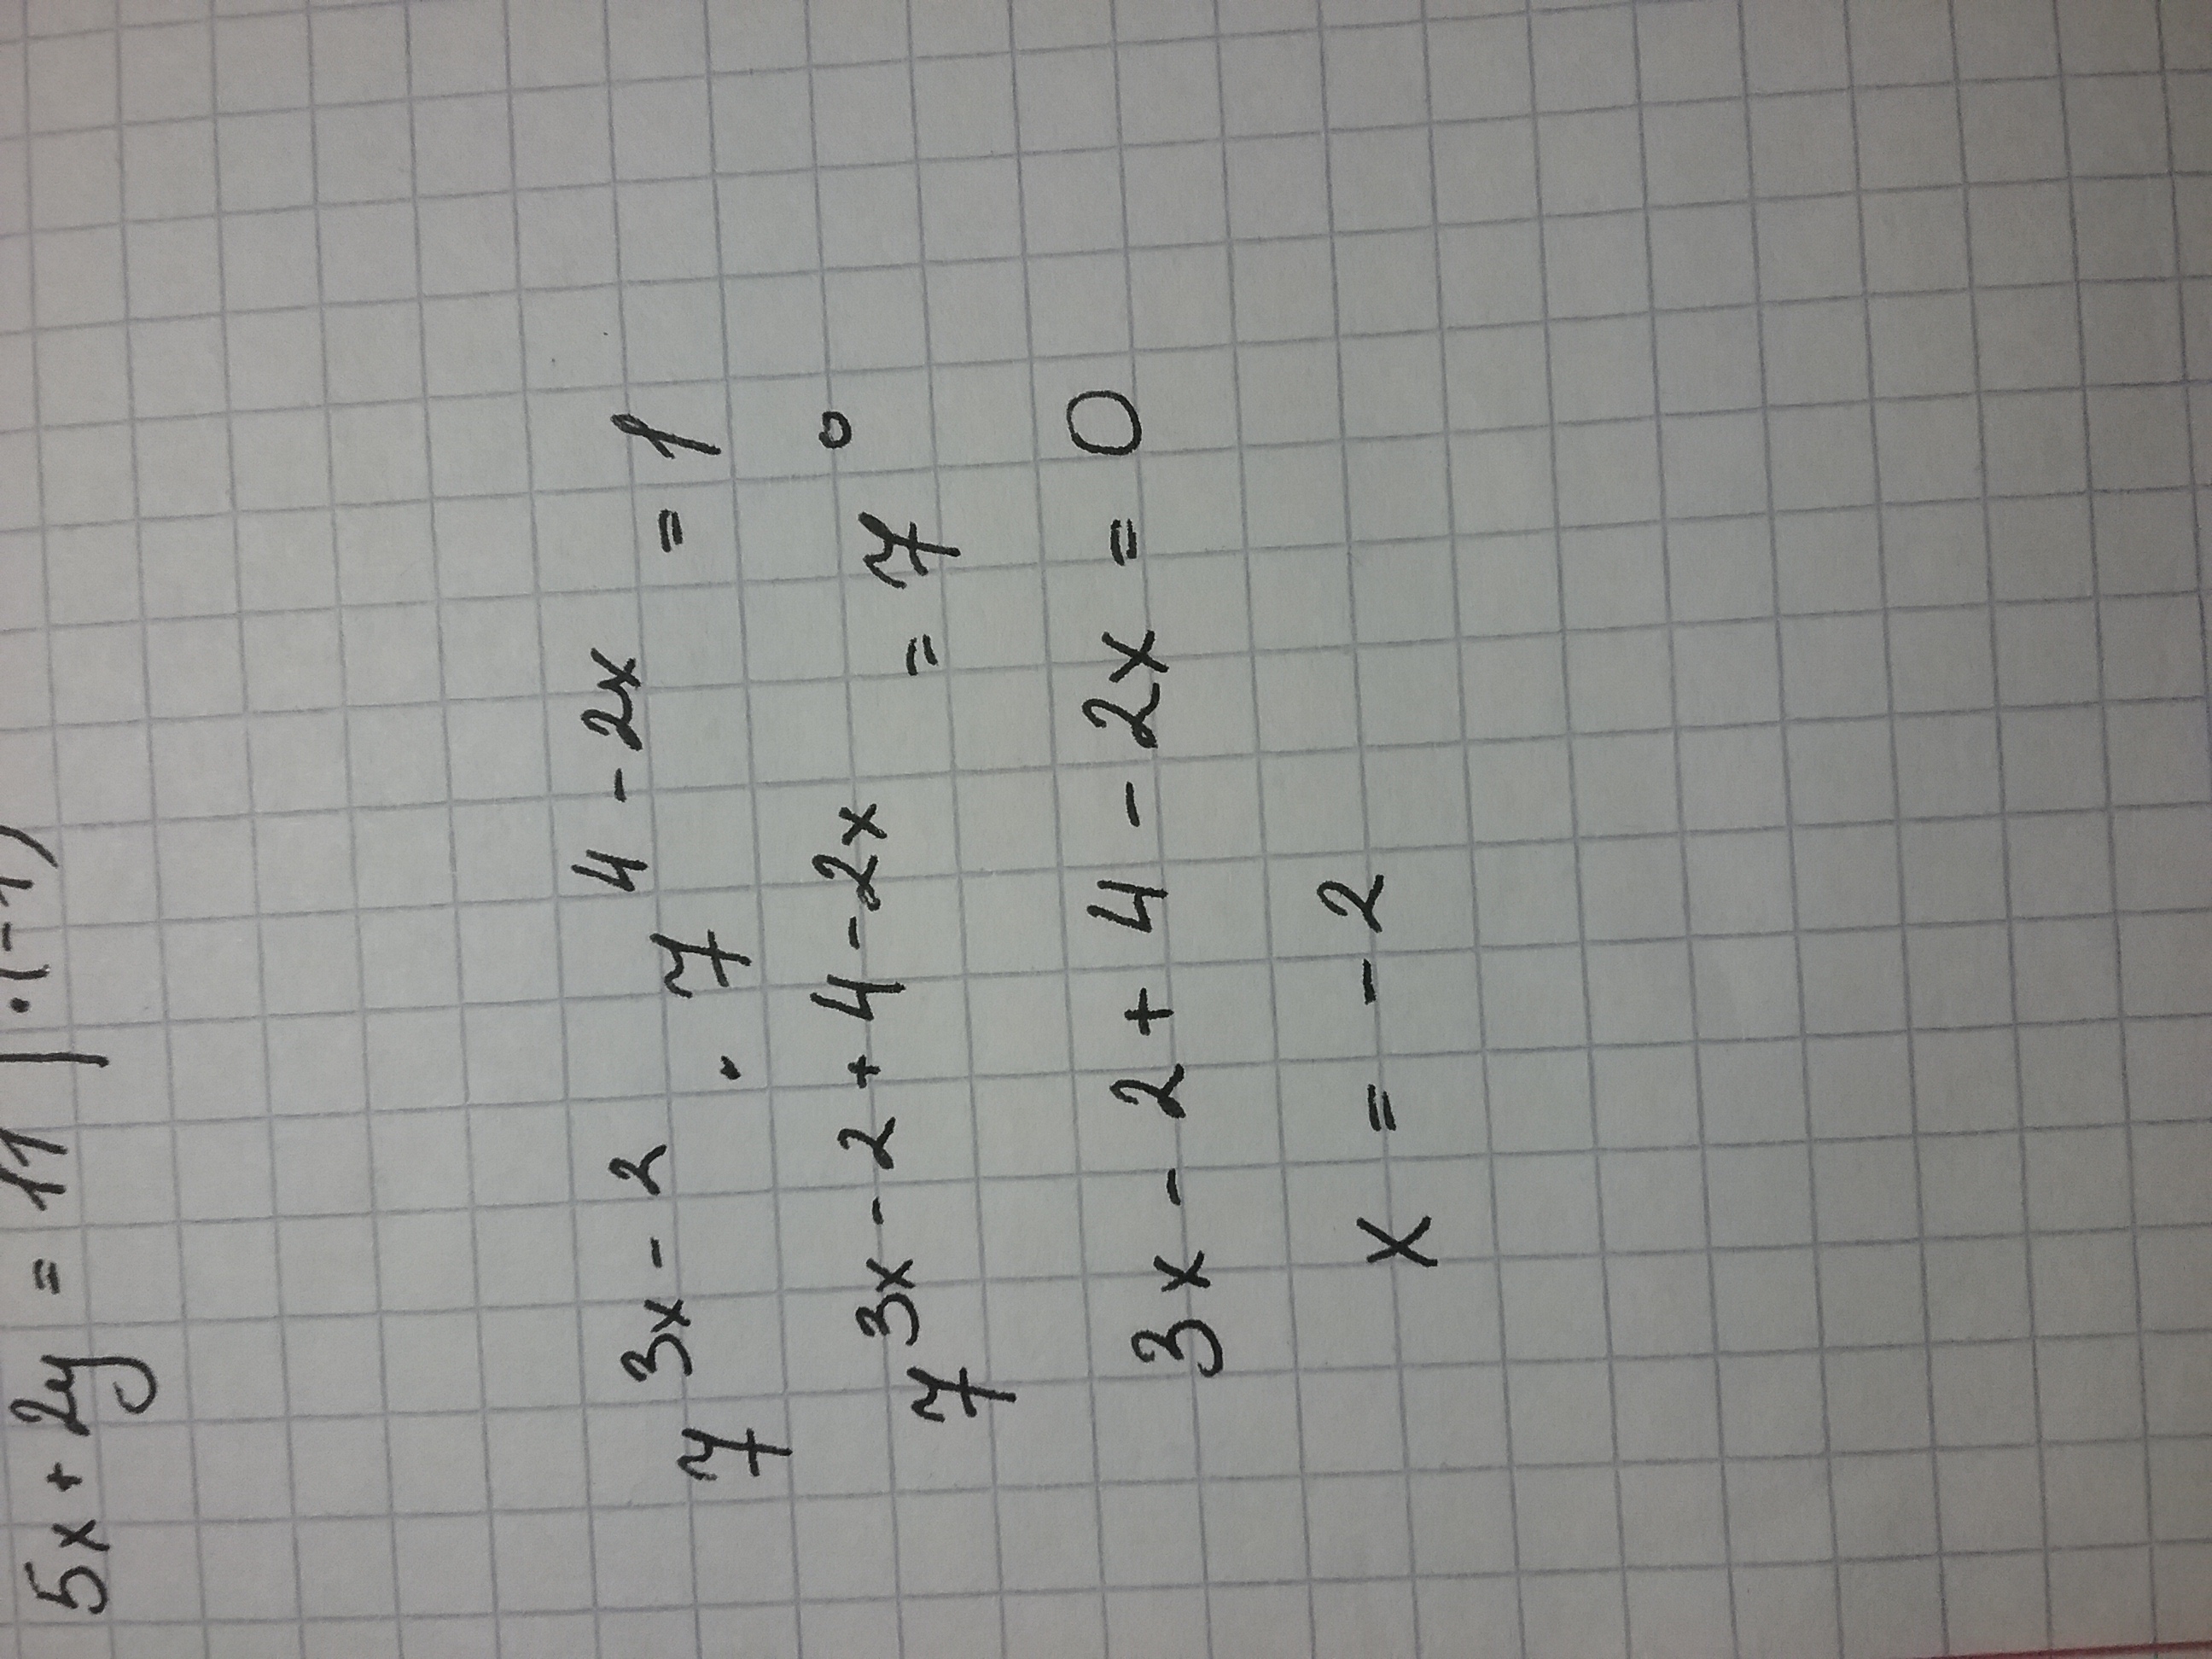 5x + 2y = 11 | · (-1)
7^{3x-2} · 7^{4-2x} = 1
7^{3x-2+4-2x} = 7^{0}
3x - 2 + 4 - 2x = 0
x = -2